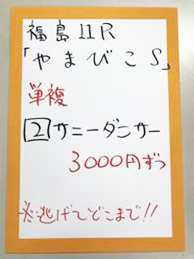 福島11R
「やまびこS」
単複
2サニーダンサー
3000円ずつ
※逃げてどこまで!!